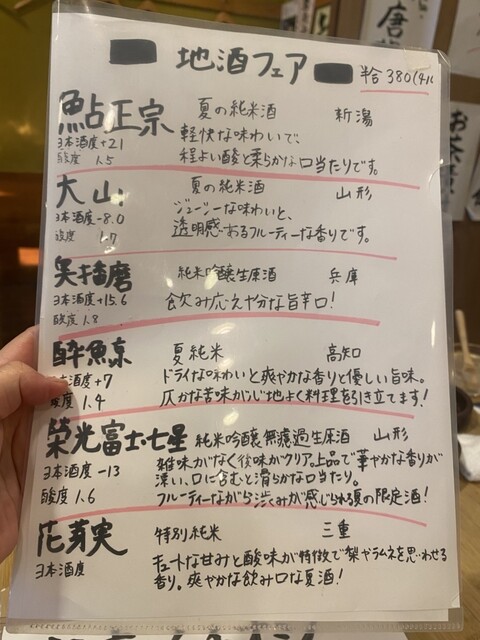 地酒フェア 半合 380(418
鮎正宗 夏の純米酒 新潟
日本酒度+21 軽快な味わいで、
酸度 1.5 程よい酸と柔らかな口当たりです。
大山 夏の純米酒 山形
日本酒度-8.0 ジューシーな味わいと、
酸度 1.7 透明感あるフルーティーな香りです。
奥播磨 純米吟醸生原酒 兵庫
日本酒度+15.6 飲み応え十分な旨辛口!
酸度 1.8
酔鯨 夏純米 高知
日本酒度+7 ドライな味わいと爽やかな香りと優しい旨味。
酸度 1.4 仄かな苦味が心地よく料理を引き立てます!
栄光冨士七星 純米吟醸無濾過生原酒 山形
日本酒度 -13 雑味がなく後味がクリア。上品で華やかな香りが
酸度 1.6 漂い、口に含むと滑らかな口当たり。
フルーティーながら渋みが感じられる夏の限定酒!
花芽実 特別純米 三重
日本酒度 キュートな甘みと酸味が特徴で梨やラムネを思わせる
香り。爽やかな飲み口な夏酒!
お茶漬